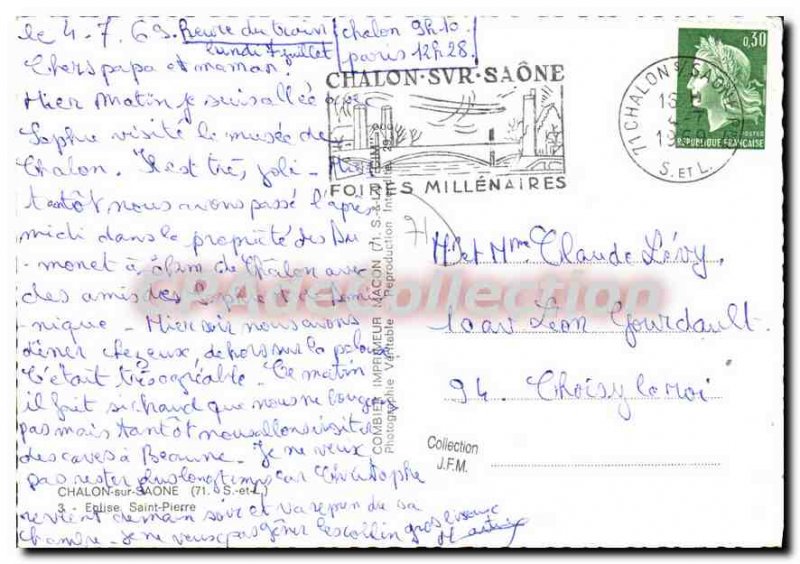 le 4-7.69. heure du train chalon 9h10
lundi 7 juillet paris 12h28
Chers papa et maman.
Hier matin je suis allée avec
Sophie visité le musée de
Chalon. Il est très joli. Hier
tantôt nous avons passé l'après
midi dans la propriété des Du
-monet à de Chalon avec
des amis de Sophie et de Domi
nique. Hier soir nous avons
dîner chez eux, dehors sur la pelouse
C'était très agréable. Ce matin
il fait si chaud que nous ne bougeons
pas mais tantôt nous allons visiter
des caves à Beaune. Je ne veux
pas rester plus longtemps car Christophe
revient demain soir et va reprendre sa
chambre. Je ne veux pas gêner les Collin gros bisous
Martine
CHALON-sur-SAONE (71. S.-et-L.)
3. - Eglise Saint-Pierre
CHALON·SUR·SAÔNE
FOIRES MILLÉNAIRES
71 CHALON S/ SAONE
16 H
4-7
1969
S. ET L.
0,30
POSTES
REPUBLIQUE FRANÇAISE
COMBIER IMPRIMEUR MACON (71. S.-&-L.) "CIM"
Photographie Véritable - Reproduction Interdite
71
Mr et Mme Claude Lévy.
10 av Léon Gourdault.
94. Choisy le roi
Collection
J.F.M.
CPADeCollection